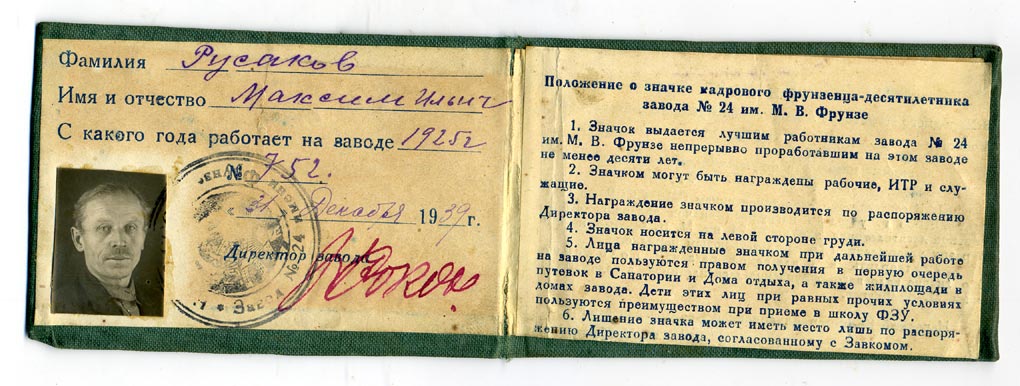 Фамилия Русаков
Имя и отчество Максим Ильич
С какого года работает на заводе 1925г
№ 752.
„31„ Декабря 1939 г.
Директор завода
Завод № 24
Положение о значке кадрового фрунзенца-десятилетника
завода № 24 им. М. В. Фрунзе
1. Значок выдается лучшим работникам завода № 24
им. М. В. Фрунзе непрерывно проработавшим на этом заводе
не менее десяти лет.
2. Значком могут быть награждены рабочие, ИТР и слу-
жащие.
3. Награждение значком производится по распоряжению
Директора завода.
4. Значок носится на левой стороне груди.
5. Лица награжденные значком при дальнейшей работе
на заводе пользуются правом получения в первую очередь
путевок в Санатории и Дома отдыха, а также жилплощади в
домах завода. Дети этих лиц при равных прочих условиях
пользуются преимуществом при приеме в школу ФЗУ.
6. Лишение значка может иметь место лишь по распоря-
жению Директора завода, согласованному с Завкомом.